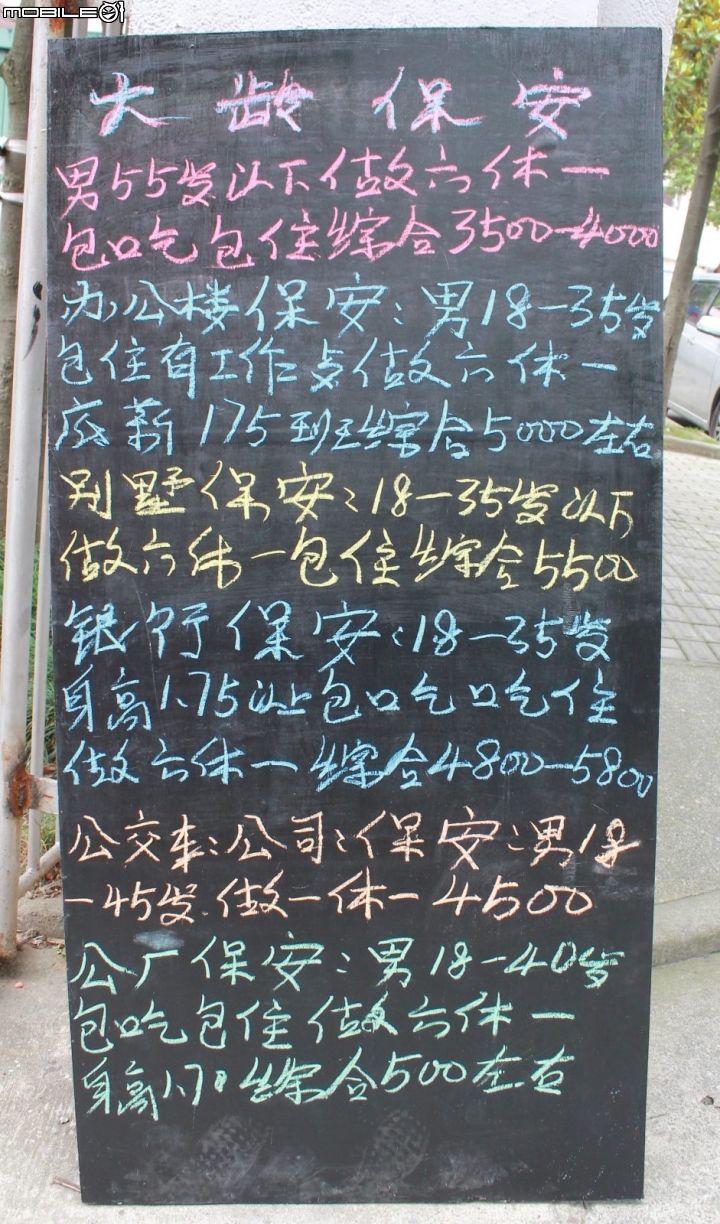 MOBILE01
大龄保安
男55岁以下做六休一
包口吃包住综合3500-4000
办公楼保安:男18-35岁
包住有工作点做六休一
底薪175到班综合5000左右
别墅保安:18-35岁以下
做六休一包住综合5500
银行保安:18-35岁
身高1.75以上包口吃口吃住
做六休一综合4800-5800
公交车:公司:保安:男18
-45岁.做一休一4500
公厂保安:男18-40岁
包吃包住做六休一
身高1.70综合500左右